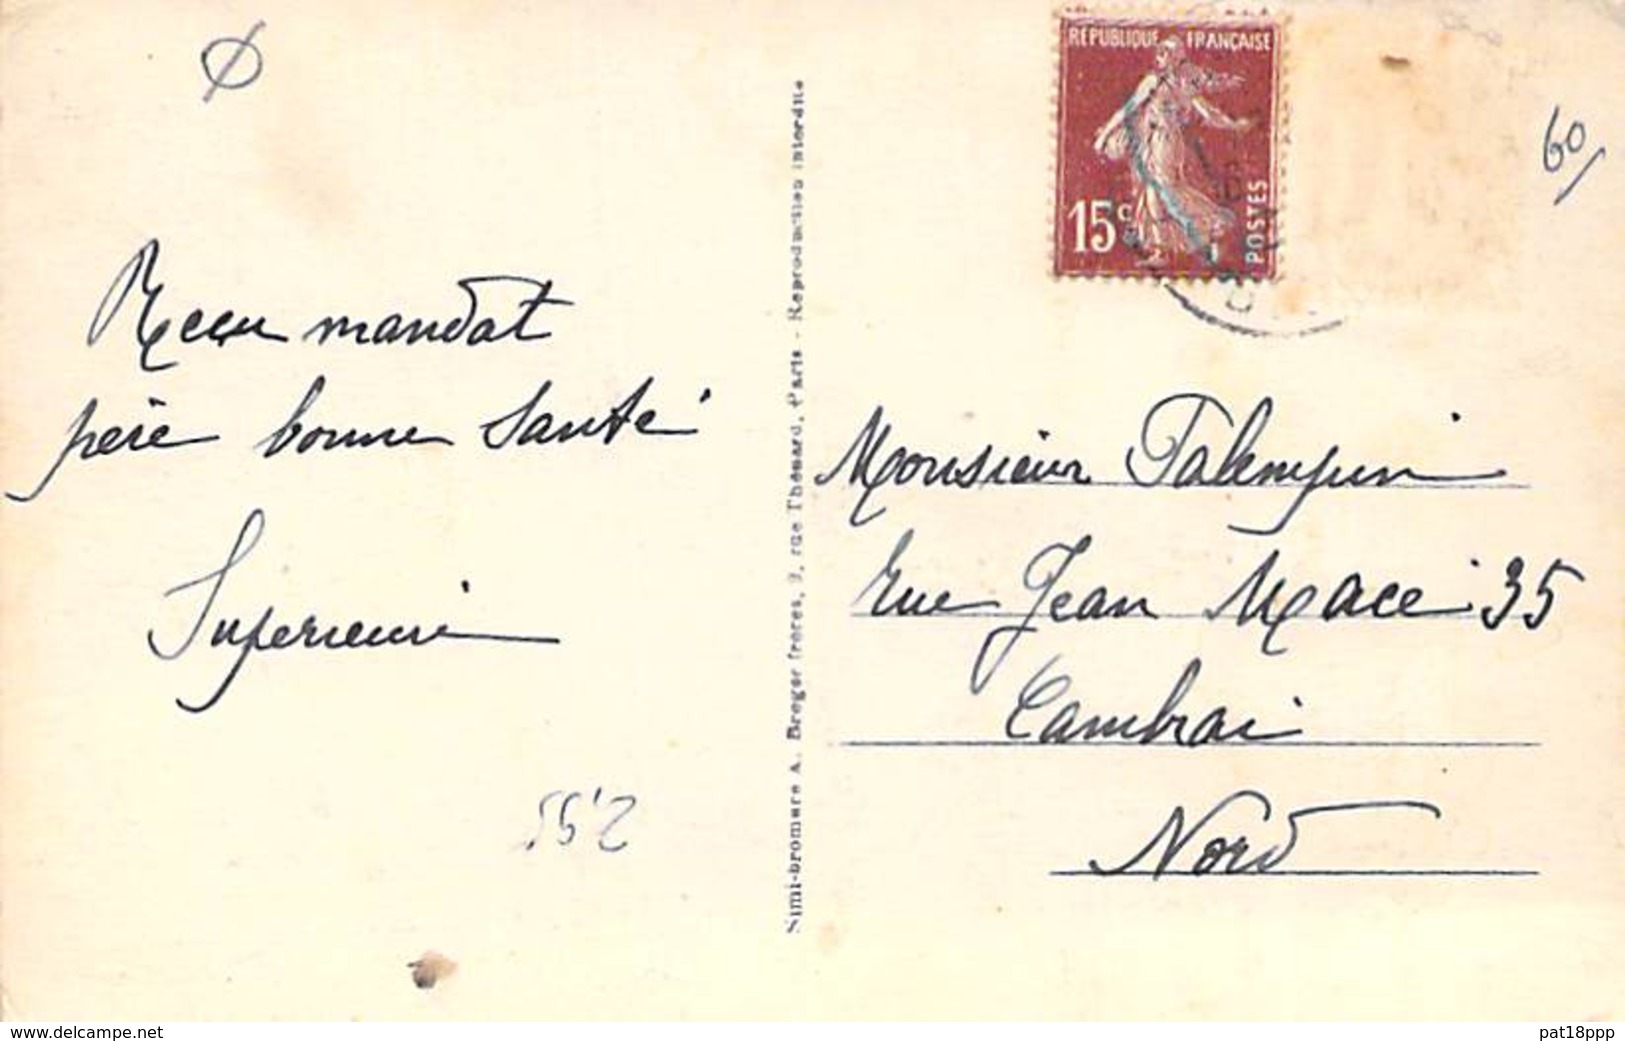 Recu mandat
père bonne santé
Superieure
2,55
Simi-bromure A. Breger frères, 9, rue Thénard, Paris - Reproduction interdite
RÉPUBLIQUE FRANÇAISE
15c
POSTES
60/
Monsieur
rue Jean Macé 35
Cambrai
Nord
www.delcampe.net
pat18ppp